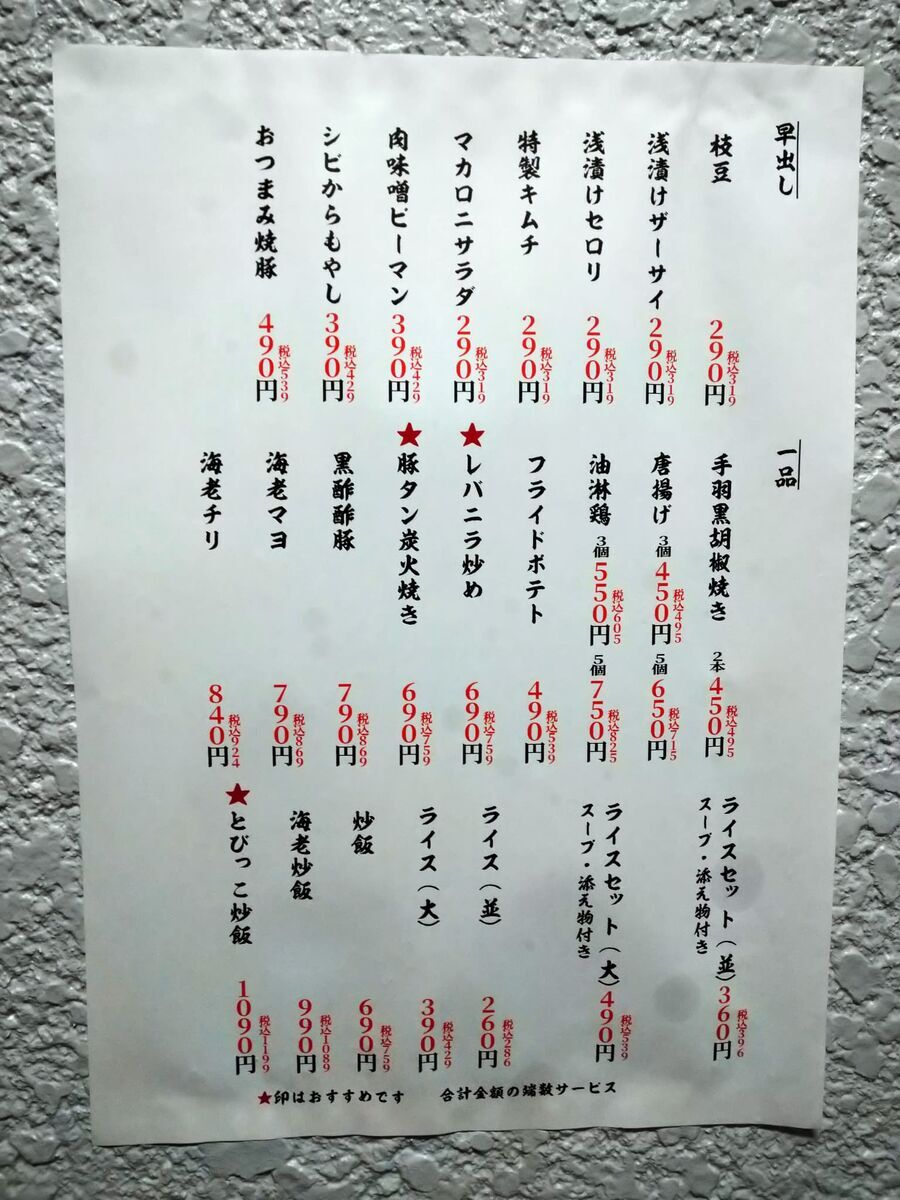 早出し
枝豆 290円 税込319
浅漬けザーサイ 290円 税込319
浅漬けセロリ 290円 税込319
特製キムチ 290円 税込319
マカロニサラダ 290円 税込319
肉味噌ピーマン 390円 税込429
シビからもやし 390円 税込429
おつまみ焼豚 490円 税込539
一品
手羽黒胡椒焼き 2本 450円 税込495
唐揚げ 3個 450円 税込495 5個 650円 税込715
油淋鶏 3個 550円 税込605 5個 750円 税込825
フライドポテト 490円 税込539
★レバニラ炒め 690円 税込759
★豚タン炭火焼き 690円 税込759
黒酢酢豚 790円 税込869
海老マヨ 790円 税込869
海老チリ 840円 税込924
ライスセット(並) 360円 税込396
スープ・添え物付き
ライスセット(大) 490円 税込539
スープ・添え物付き
ライス(並) 260円 税込286
ライス(大) 390円 税込429
炒飯 690円 税込759
海老炒飯 990円 税込1089
★とびっこ炒飯 1090円 税込1199
★印はおすすめです 合計金額の端数サービス